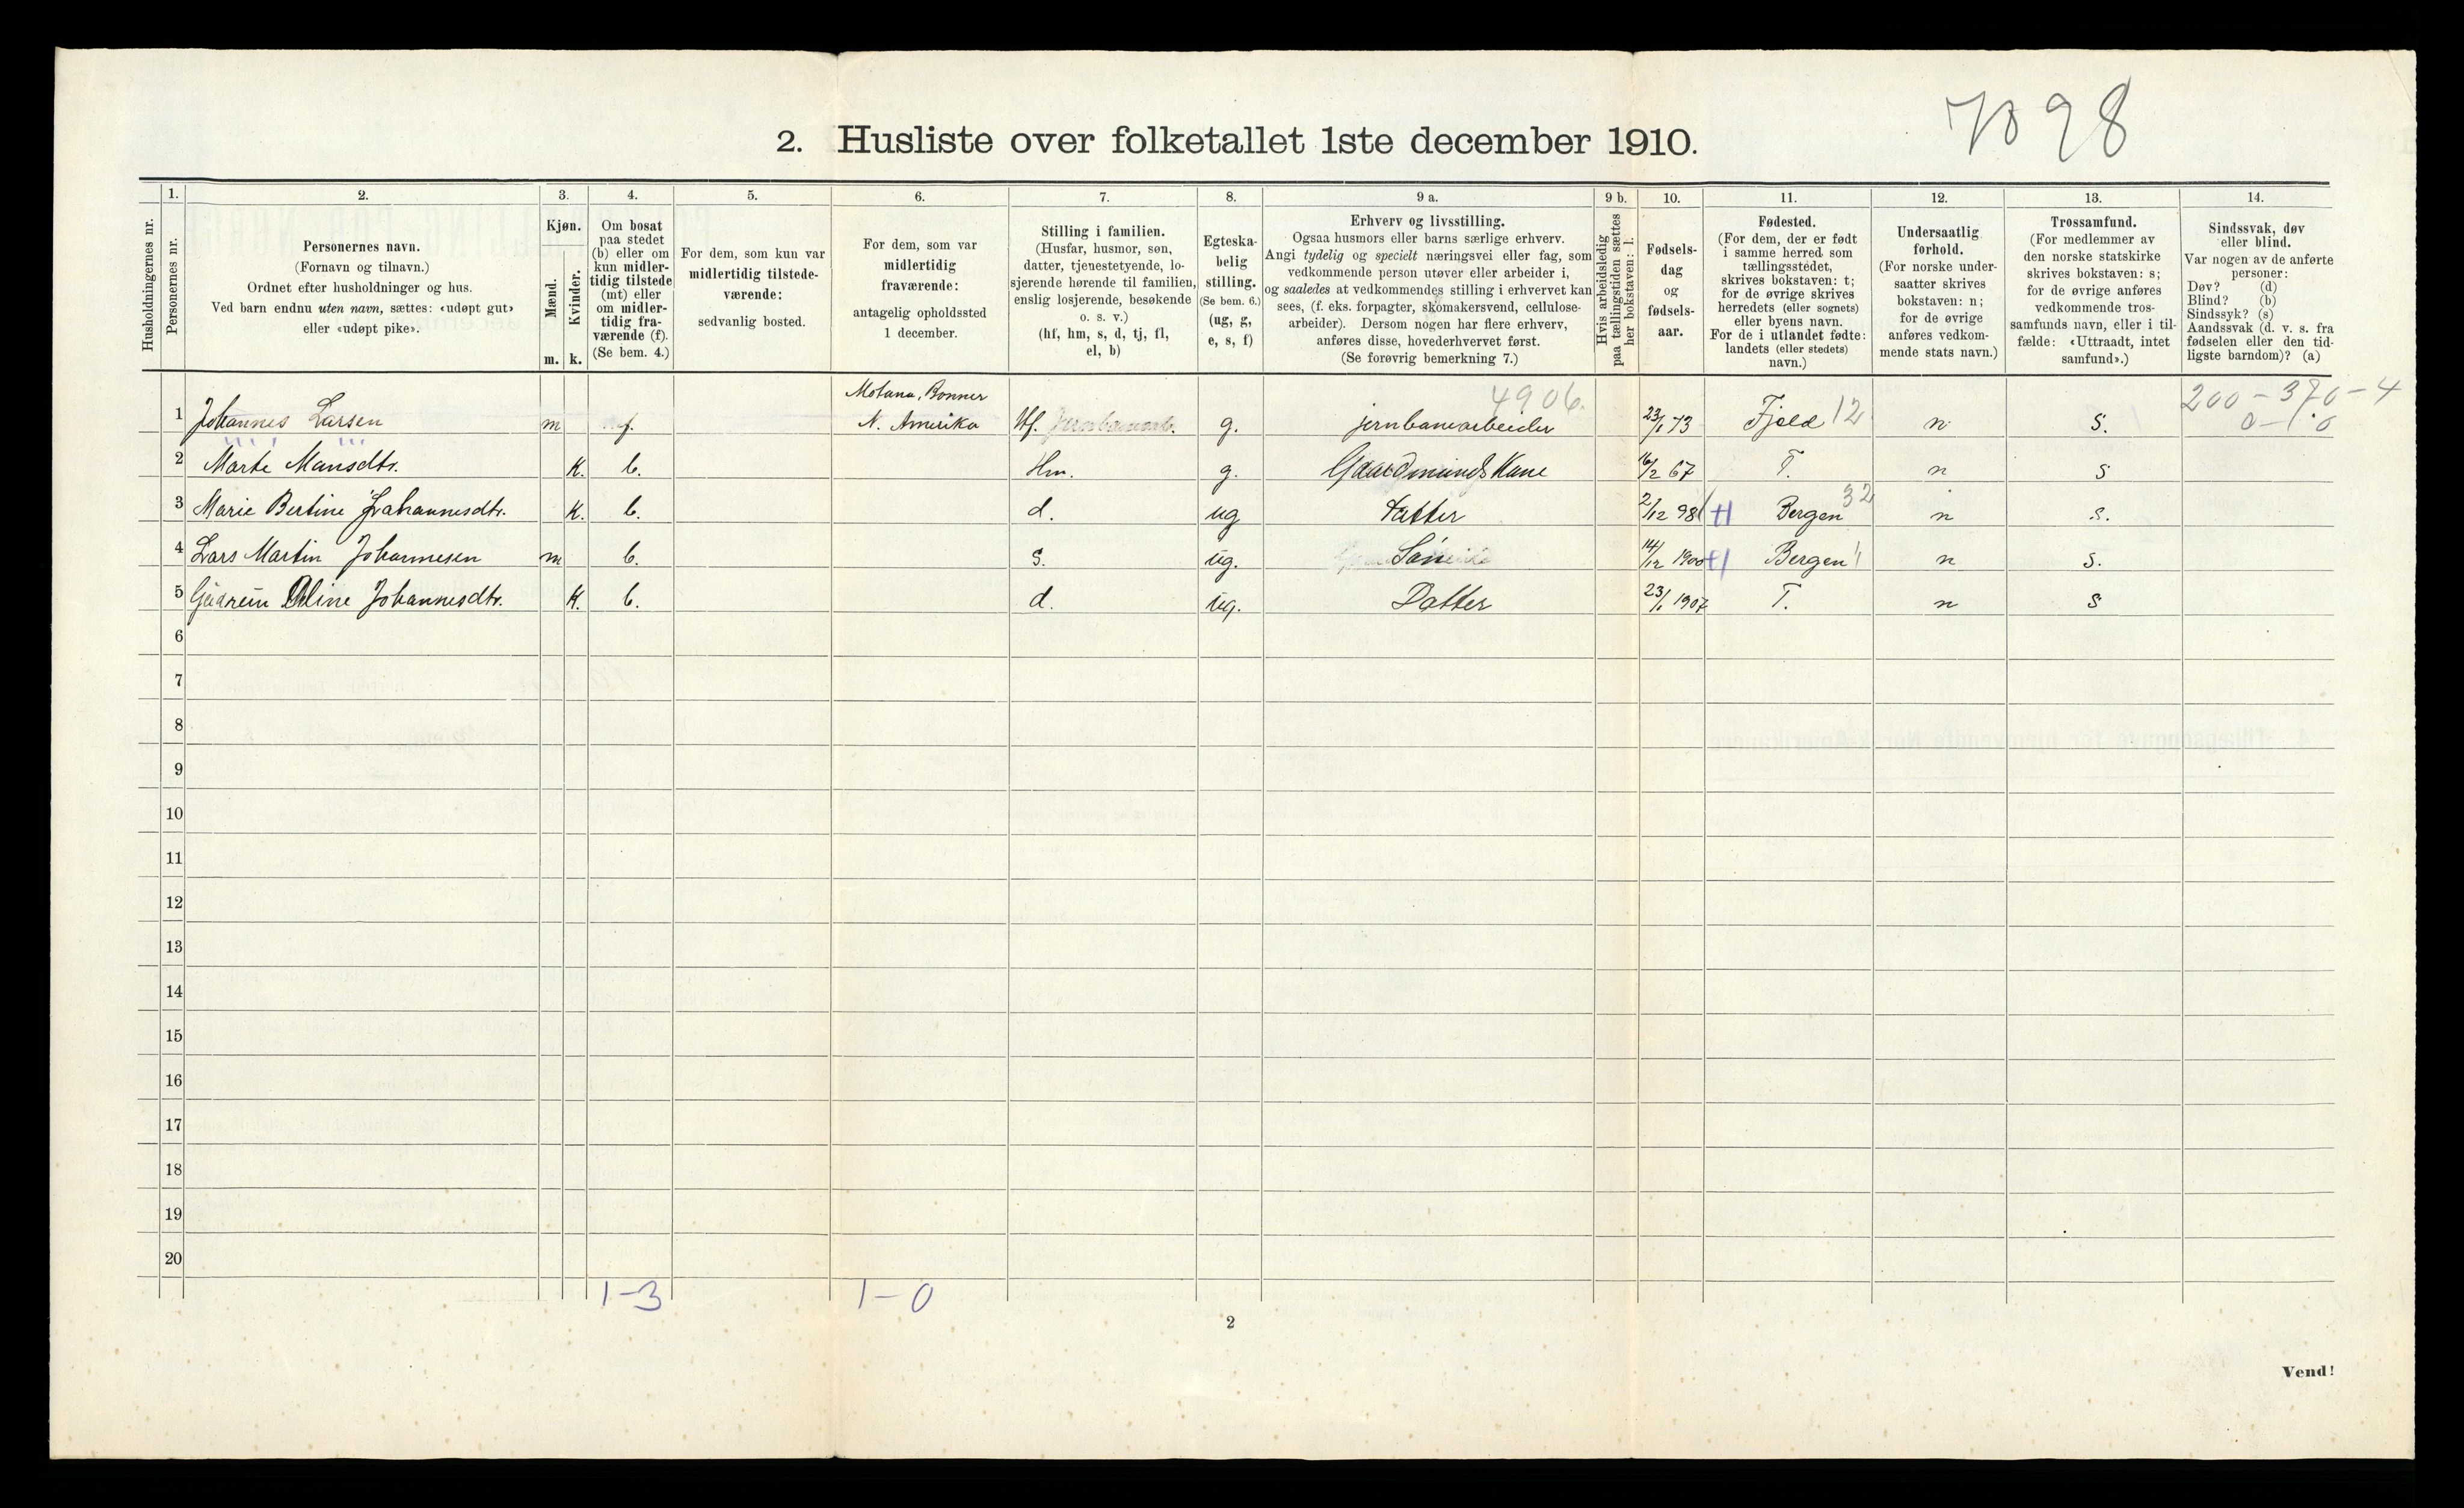 7098
2. Husliste over folketallet 1ste december 1910.
Husholdningernes nr.
1.
Personernes nr.
2.
Personernes navn.
(Fornavn og tilnavn.)
Ordnet efter husholdninger og hus.
Ved barn endnu uten navn, sættes: «udøpt gut»
eller «udøpt pike».
3.
Kjøn.
Mænd.
Kvinder.
m. k.
4.
Om bosat
paa stedet
(b) eller om
kun midler-
tidig tilstede
(mt) eller
om midler-
tidig fra-
værende (f).
(Se bem. 4.)
5.
For dem, som kun var
midlertidig tilstede-
værende:
sedvanlig bosted.
6.
For dem, som var
midlertidig
fraværende:
antagelig opholdssted
1 december.
7.
Stilling i familien.
(Husfar, husmor, søn,
datter, tjenestetyende, lo-
sjerende hørende til familien,
enslig losjerende, besøkende
o. s. v.)
(hf, hm, s, d, tj, fl,
el, b)
8.
Egteska-
belig
stilling.
(Se bem. 6.)
(ug, g,
e, s, f)
9 a.
Erhverv og livsstilling.
Ogsaa husmors eller barns særlige erhverv.
Angi tydelig og specielt næringsvei eller fag, som
vedkommende person utøver eller arbeider i,
og saaledes at vedkommendes stilling i erhvervet kan
sees, (f. eks. forpagter, skomakersvend, cellulose-
arbeider). Dersom nogen har flere erhverv,
anføres disse, hovederhvervet først.
(Se forøvrig bemerkning 7.)
9 b.
Hvis arbeidsledig
paa tællingstiden sættes
her bokstaven: l.
10.
Fødsels-
dag
og
fødsels-
aar.
11.
Fødested.
(For dem, der er født
i samme herred som
tællingsstedet,
skrives bokstaven: t;
for de øvrige skrives
herredets (eller sognets)
eller byens navn.
For de i utlandet fødte:
landets (eller stedets)
navn.)
12.
Undersaatlig
forhold.
(For norske under-
saatter skrives
bokstaven: n;
for de øvrige
anføres vedkom-
mende stats navn.)
13.
Trossamfund.
(For medlemmer av
den norske statskirke
skrives bokstaven: s;
for de øvrige anføres
vedkommende tros-
samfunds navn, eller i til-
fælde: «Uttraadt, intet
samfund».)
14.
Sindssvak, døv
eller blind.
Var nogen av de anførte
personer:
Døv? (d)
Blind? (b)
Sindssyk? (s)
Aandssvak (d. v. s. fra
fødselen eller den tid-
ligste barndom)? (a)
Motana, Bonner 4906. 200 - 370 - 4
1 Johannes Larsen m f. N. Amerika Hf. Jernbanearb. g. jernbanearbeider 23/1 73 Fjeld 12 n S. 0 - 1 · 0
2 Marte Mansdtr. K. b. Hm. g. Gaardmands Kane 16/2 67 T. n s
3 Marie Bertine Johannesdtr. K. b. d. ug Datter 2/12 98 Bergen 32 n s.
4 Lars Martin Johannesen m b. s. ug. Sön 14/12 1900 Bergen n s.
5 Gudrun Oline Johannesdtr. K. b. d. ug. Datter 23/1 1907 T. n s
6
7
8
9
10
11
12
13
14
15
16
17
18
19
20
1-3 1-0
2
Vend!